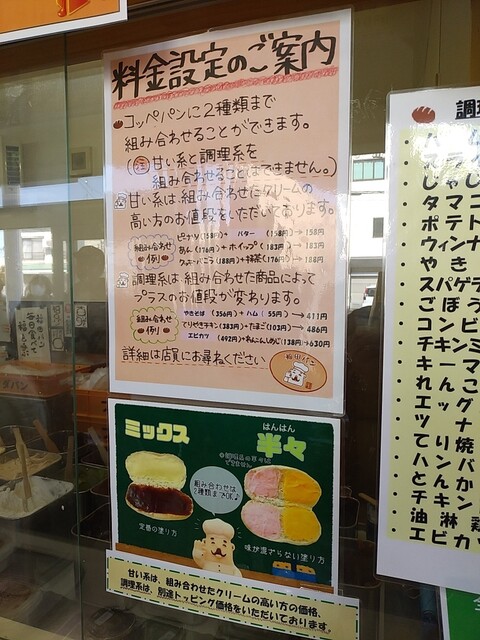 料金設定のご案内
コッペパンに2種類まで
組み合わせることができます。
甘い系と調理系を
組み合わせることはできません。)
甘い系は、組み合わせたクリームの
高い方のお値段をいただいております。
組み合わせ
例
ピーナツ(158円)+ バター (158円)→158円
あん(176円)+ホイップ(183円)→183円
(188円)+抹茶(176円)→188円
調理系は組み合わせた商品によって
プラスのお値段が変わります。
組み合わせ
例
やきそば (356円)+ハム(55円)→411円
てりやきチキン(383円)+たまご(103円)→486円
エビカツ (492円)+れんこんしめじ(138円)→630円
詳細は店員にお尋ねください
ミックス
はんはん
半々
できません
組み合わせは
2種類までOK♪
定番の塗り方
味が混ざらない塗り方
甘い系は、組み合わせたクリームの高い方の価格、
調理系は、別途トッピング価格をいただいております。
調理
・ジャ
・タマゴ
・ポテト
・ウィンナ
・やき
・スパゲラ
・ごぼう
・コンビ
・チキン
・キーマ
・れんこ
・エッグ
・ツナ
・て
・ハ
・と
・チキン
・油淋鶏
・エビカツ